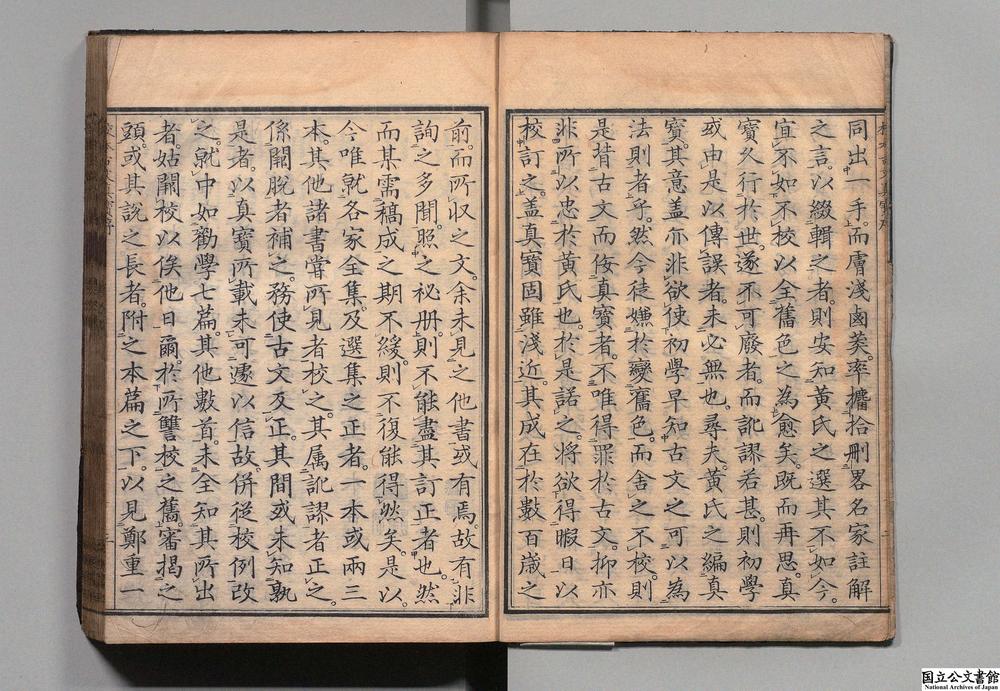 同出一手而膚淺鹵莽率攟拾刪畧名家註解
之言以綴輯之者則安知黃氏之選其不如今
宜不如不校以全舊色之為愈矣既而再思真
寶久行於世遂不可廢者而訛謬若甚則初學
或由是以傳誤者未必無也尋夫黃氏之編真
寶其意盖亦非欲使初學早知古文之可以為
法則者乎然今徒嫌於變舊色而舍之不校則
是背古文而侫真寶者不唯得罪於古文抑亦
非所以忠於黃氏也於是諾之將欲得暇日以
校訂之盖真寶固雖淺近其成在於數百歲之
前而所收之文余未見之他書或有焉故有非
詢之多聞照之祕册則不能盡其訂正者也然
而某需稿成之期不緩則不復能得然矣是以
今唯就各家全集及選集之正者一本或兩三
本其他諸書嘗所見者校之其属訛謬者正之
係闕脫者補之務使古文反正其間或未知孰
是者以真寶所載未可遽以信故併從校例改
之就中如勸學七篇其他數首未全知其所出
者姑闕校以俟他日爾於所讐校之舊審揭之
頭或其說之長者附之本篇之下以見鄭重一
国立公文書館
National Archives of Japan